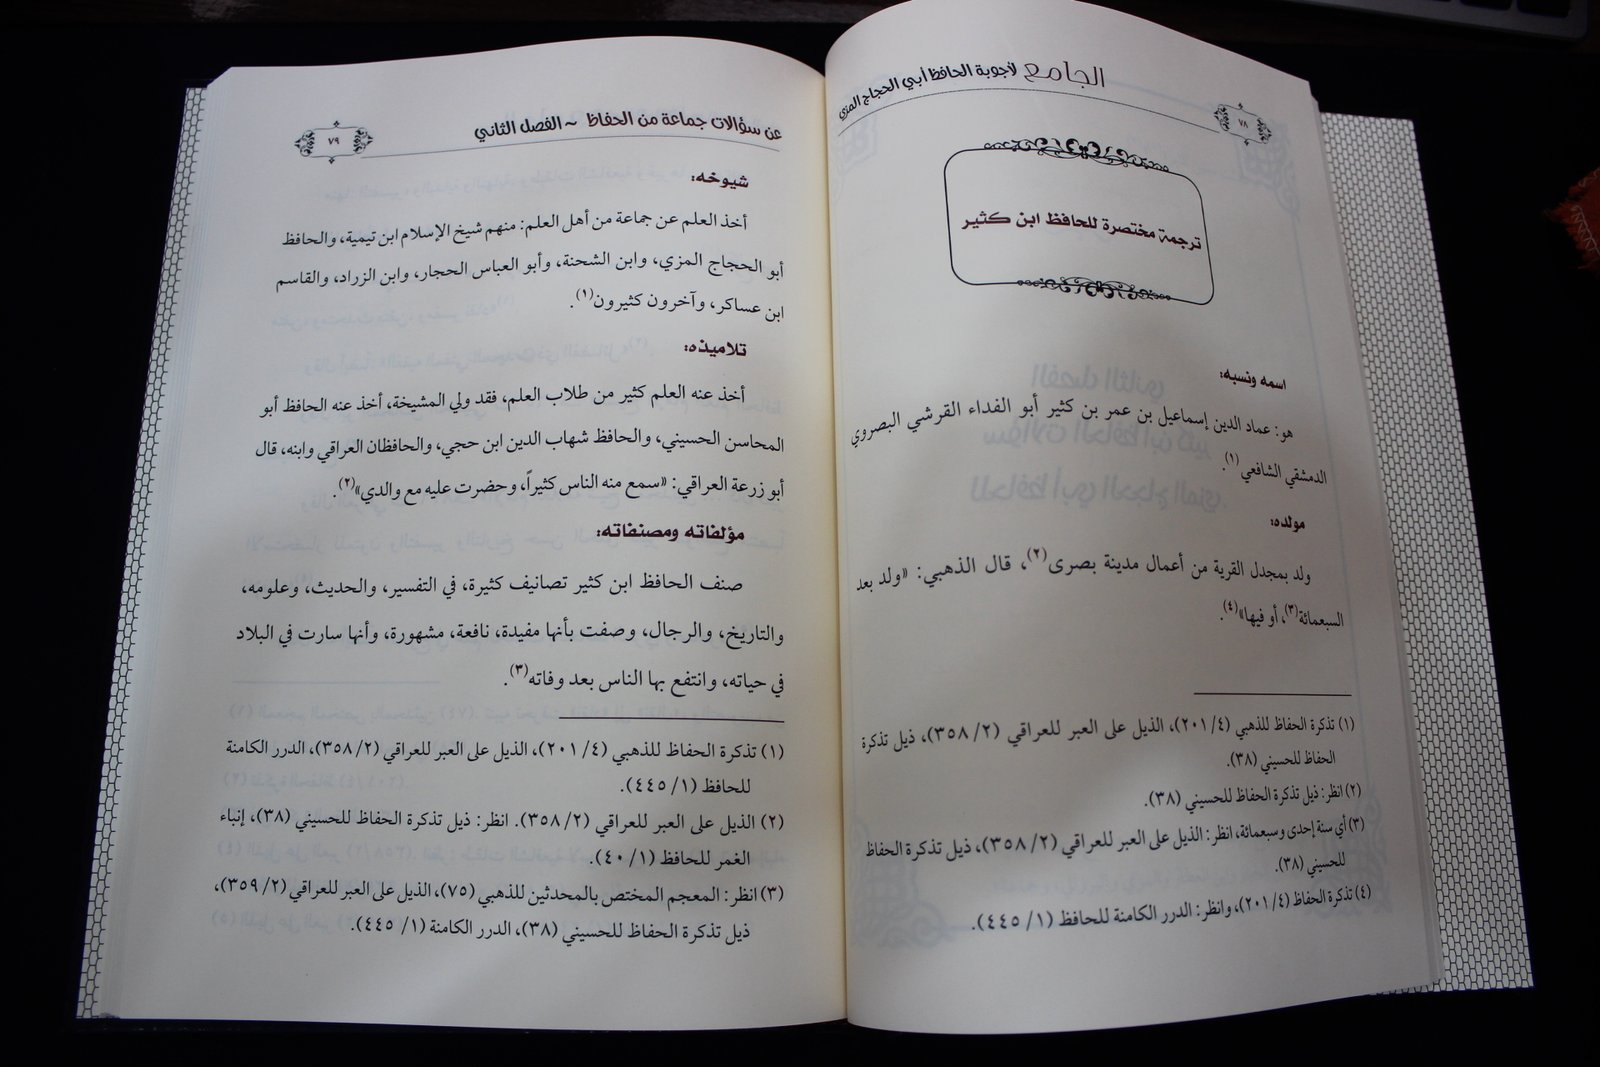 الجامع لأجوبة الحافظ أبي الحجاج المزي
٧٨
ترجمة مختصرة للحافظ ابن كثير
اسمه ونسبه:
هو: عماد الدين إسماعيل بن عمر بن كثير أبو الفداء القرشي البصروي
الدمشقي الشافعي(١).
مولده:
ولد بمجدل القرية من أعمال مدينة بصرى(٢)، قال الذهبي: «ولد بعد
السبعمائة(٣)، أو فيها»(٤).
(١) تذكرة الحفاظ للذهبي (٤/ ٢٠١)، الذيل على العبر للعراقي (٢/ ٣٥٨)، ذيل تذكرة
الحفاظ للحسيني (٣٨).
(٢) انظر: ذيل تذكرة الحفاظ للحسيني (٣٨).
(٣) أي سنة إحدى وسبعمائة، انظر: الذيل على العبر للعراقي (٢/ ٣٥٨)، ذيل تذكرة الحفاظ
للحسيني (٣٨).
(٤) تذكرة الحفاظ (٤/ ٢٠١)، وانظر: الدرر الكامنة للحافظ (١/ ٤٤٥).
عن سؤالات جماعة من الحفاظ ~ الفصل الثاني
٧٩
شيوخه:
أخذ العلم عن جماعة من أهل العلم: منهم شيخ الإسلام ابن تيمية، والحافظ
أبو الحجاج المزي، وابن الشحنة، وأبو العباس الحجار، وابن الزراد، والقاسم
ابن عساكر، وآخرون كثيرون(١).
تلاميذه:
أخذ عنه العلم كثير من طلاب العلم، فقد ولي المشيخة، أخذ عنه الحافظ أبو
المحاسن الحسيني، والحافظ شهاب الدين ابن حجي، والحافظان العراقي وابنه، قال
أبو زرعة العراقي: «سمع منه الناس كثيراً، وحضرت عليه مع والدي»(٢).
مؤلفاته ومصنفاته:
صنف الحافظ ابن كثير تصانيف كثيرة، في التفسير، والحديث، وعلومه،
والتاريخ، والرجال، وصفت بأنها مفيدة، نافعة، مشهورة، وأنها سارت في البلاد
في حياته، وانتفع بها الناس بعد وفاته(٣).
(١) تذكرة الحفاظ للذهبي (٤/ ٢٠١)، الذيل على العبر للعراقي (٢/ ٣٥٨)، الدرر الكامنة
للحافظ (١/ ٤٤٥).
(٢) الذيل على العبر للعراقي (٢/ ٣٥٨). انظر: ذيل تذكرة الحفاظ للحسيني (٣٨)، إنباء
الغمر للحافظ (١/ ٤٠).
(٣) انظر: المعجم المختص بالمحدثين للذهبي (٧٥)، الذيل على العبر للعراقي (٢/ ٣٥٩)،
ذيل تذكرة الحفاظ للحسيني (٣٨)، الدرر الكامنة (١/ ٤٤٥).